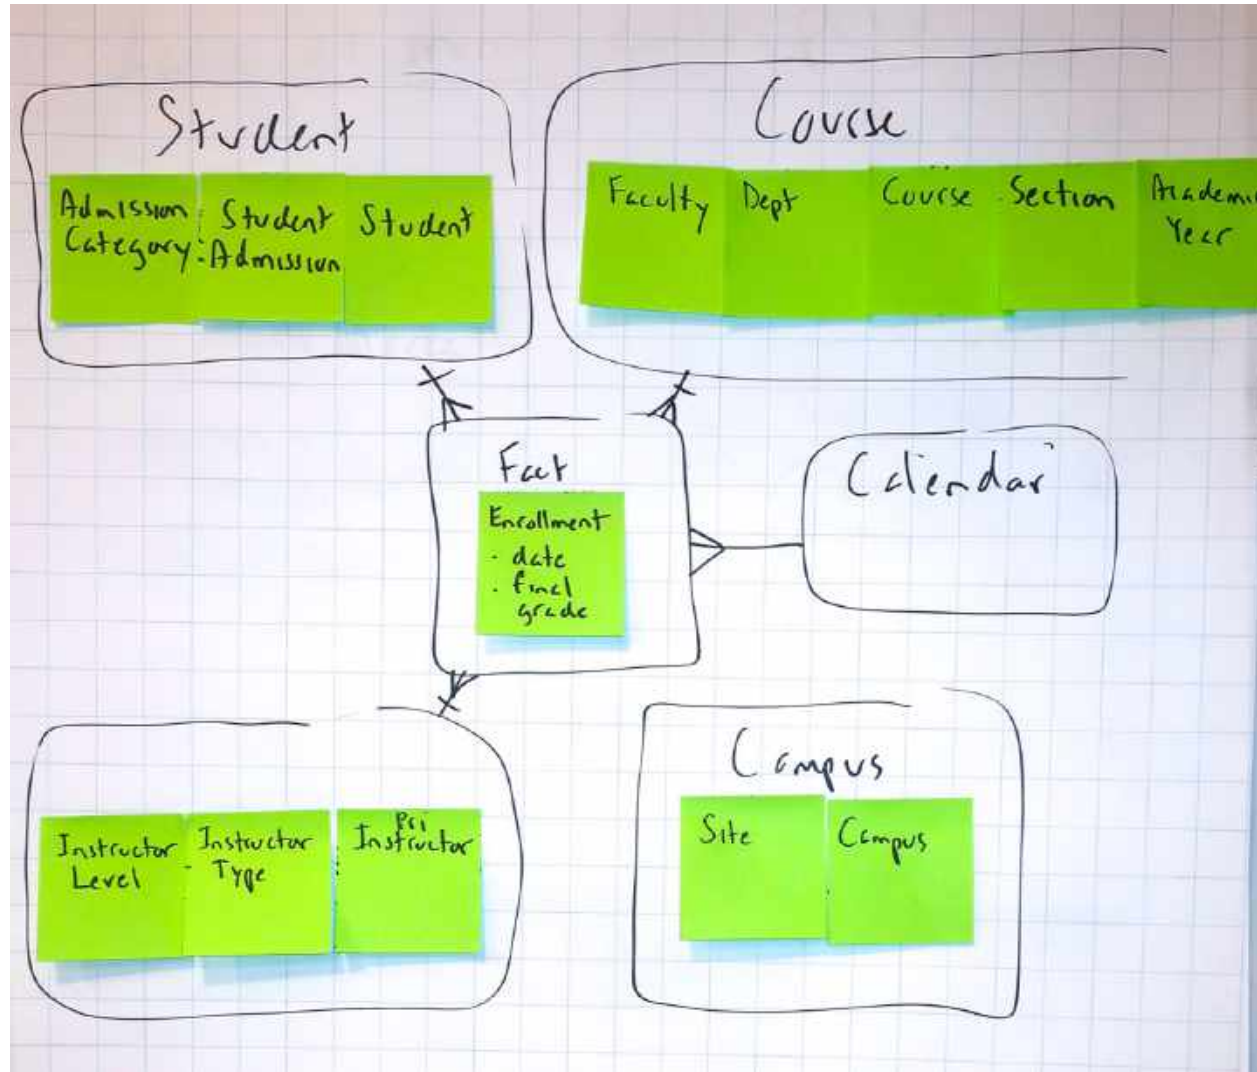 Student
Admission
Category
Student
Admission
Student
Course
Faculty
Dept
Course
Section
Academic
Year
Fact
Enrollment
- date
- final
grade
Calendar
Instructor
Level
Instructor
Type
Pri
Instructor
Campus
Site
Campus